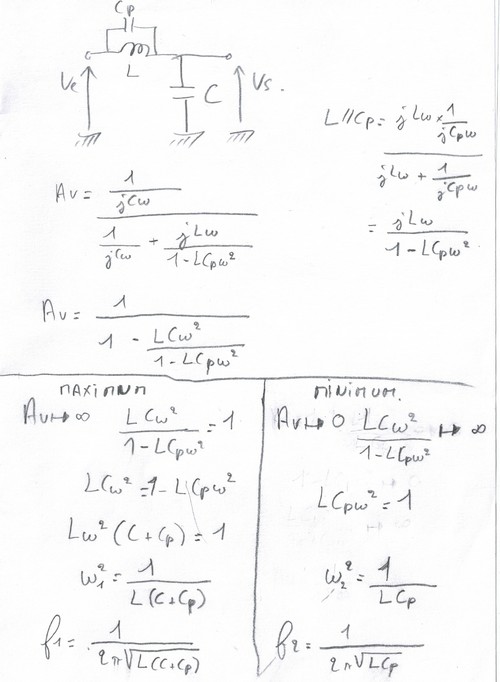 Cp
L
Ve
C
Vs.
L//Cp = jLω × 1/jCpω
jLω + 1/jCpω
= jLω / 1 - LCpω²
Av = 1/jCω
1/jCω + jLω / 1 - LCpω²
Av = 1
1 - LCω² / 1 - LCpω²
MAXIMUM
Av ↦ ∞ LCω² / 1 - LCpω² = 1
LCω² = 1 - LCpω²
Lω² (C + Cp) = 1
ω₁² = 1 / L(C+Cp)
f1 = 1 / 2π√L(C+Cp)
MINIMUM.
Av ↦ 0 LCω² / 1 - LCpω² ↦ ∞
LCpω² = 1
ω₂² = 1 / LCp
f2 = 1 / 2π√LCp